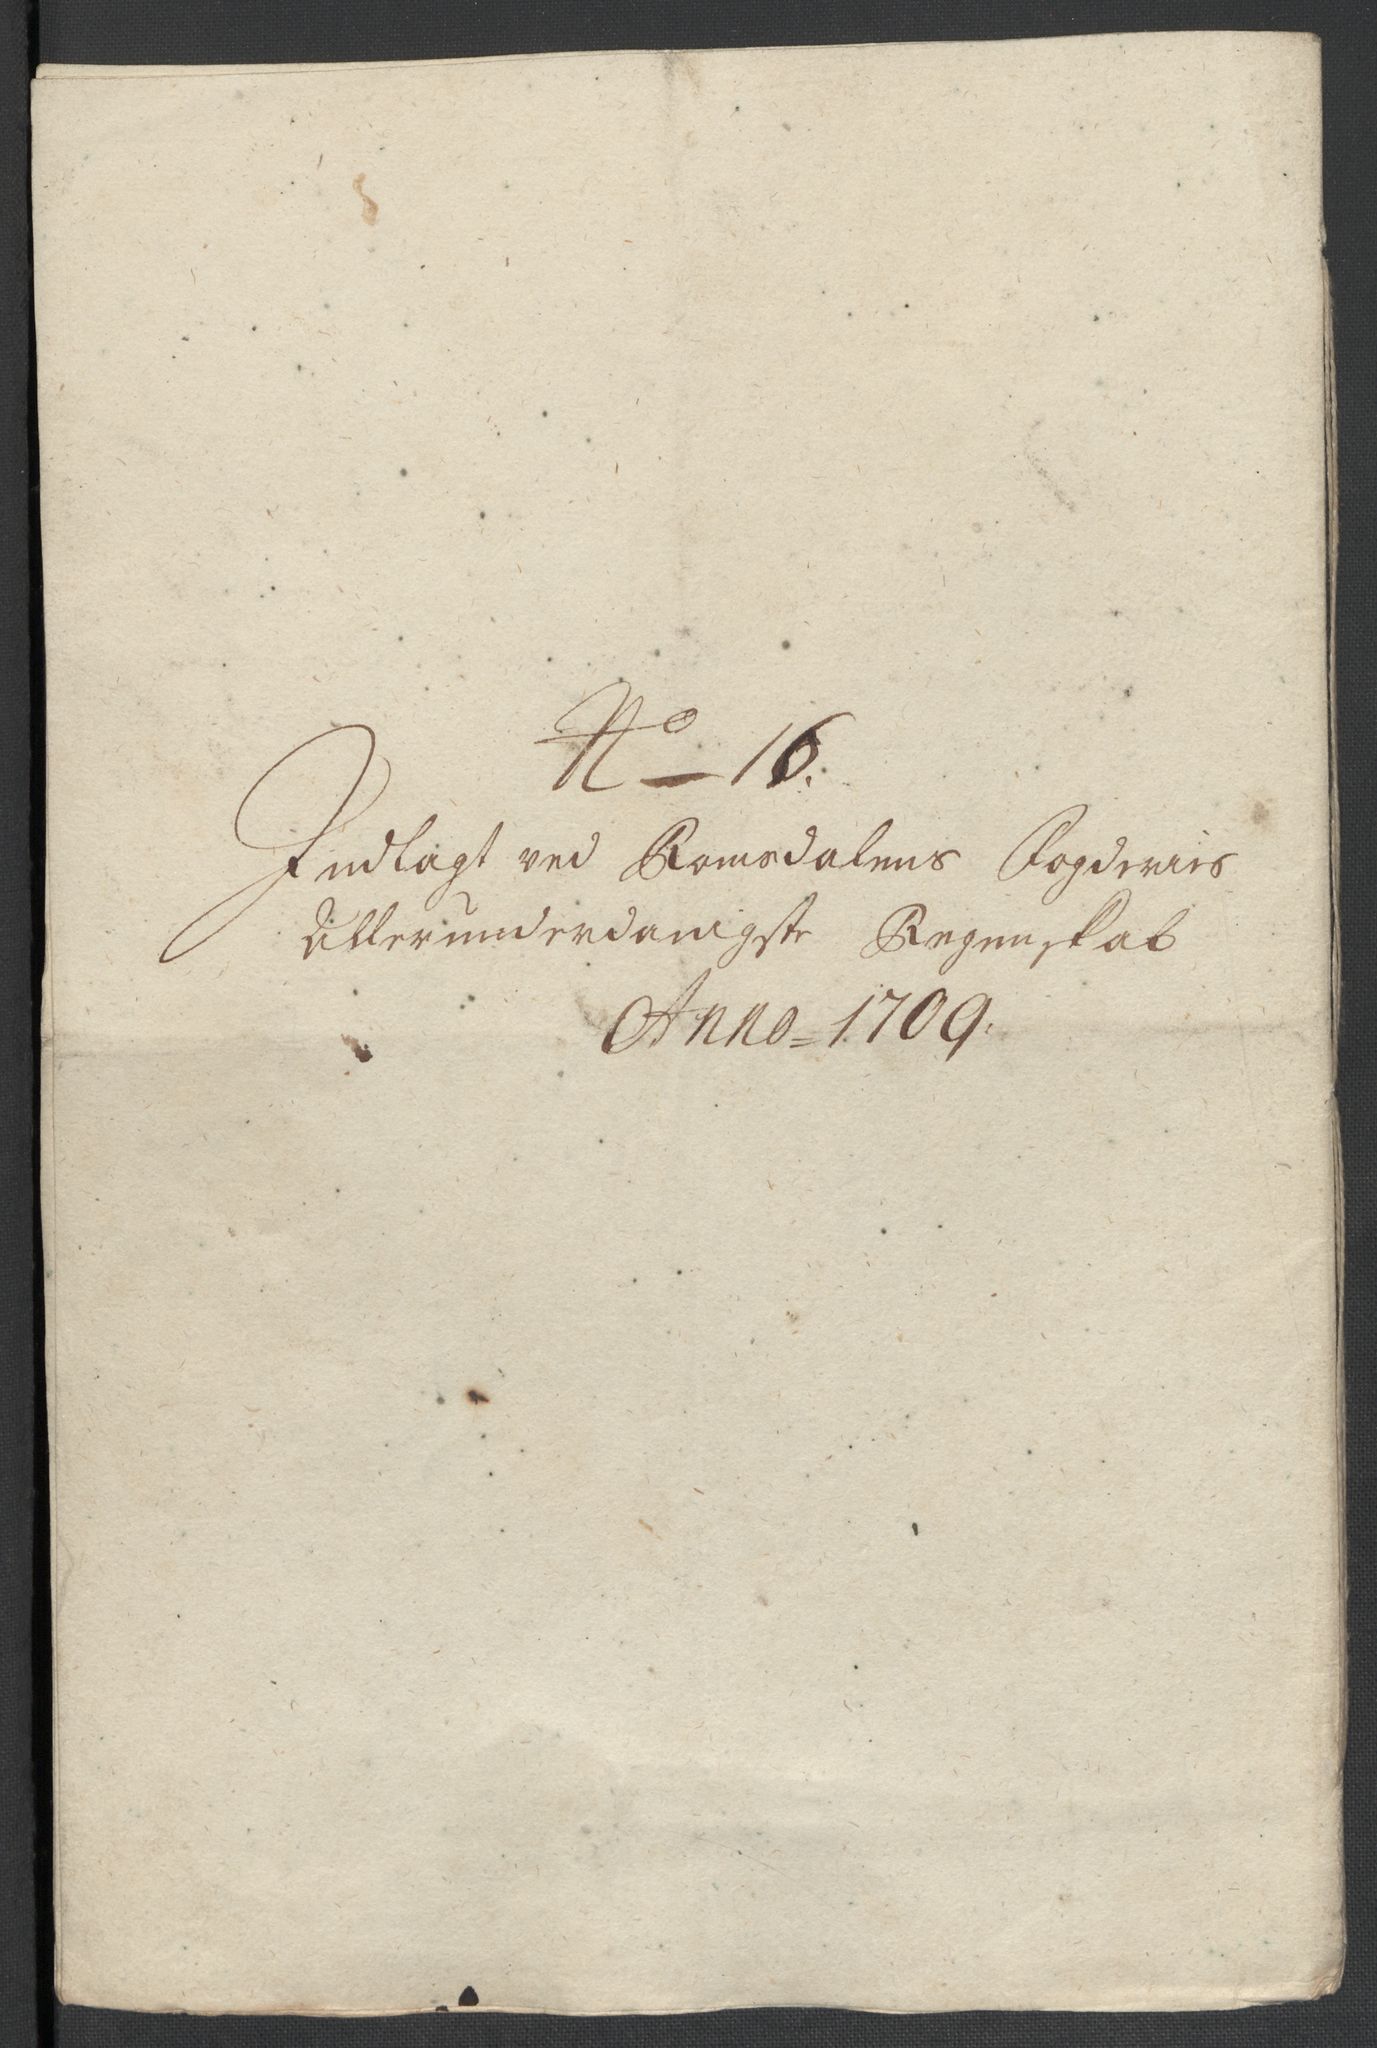 No 16.
Indlagt ved Romsdalens Fogderies
Allerunderdanigste Regenskab
Anno = 1709.